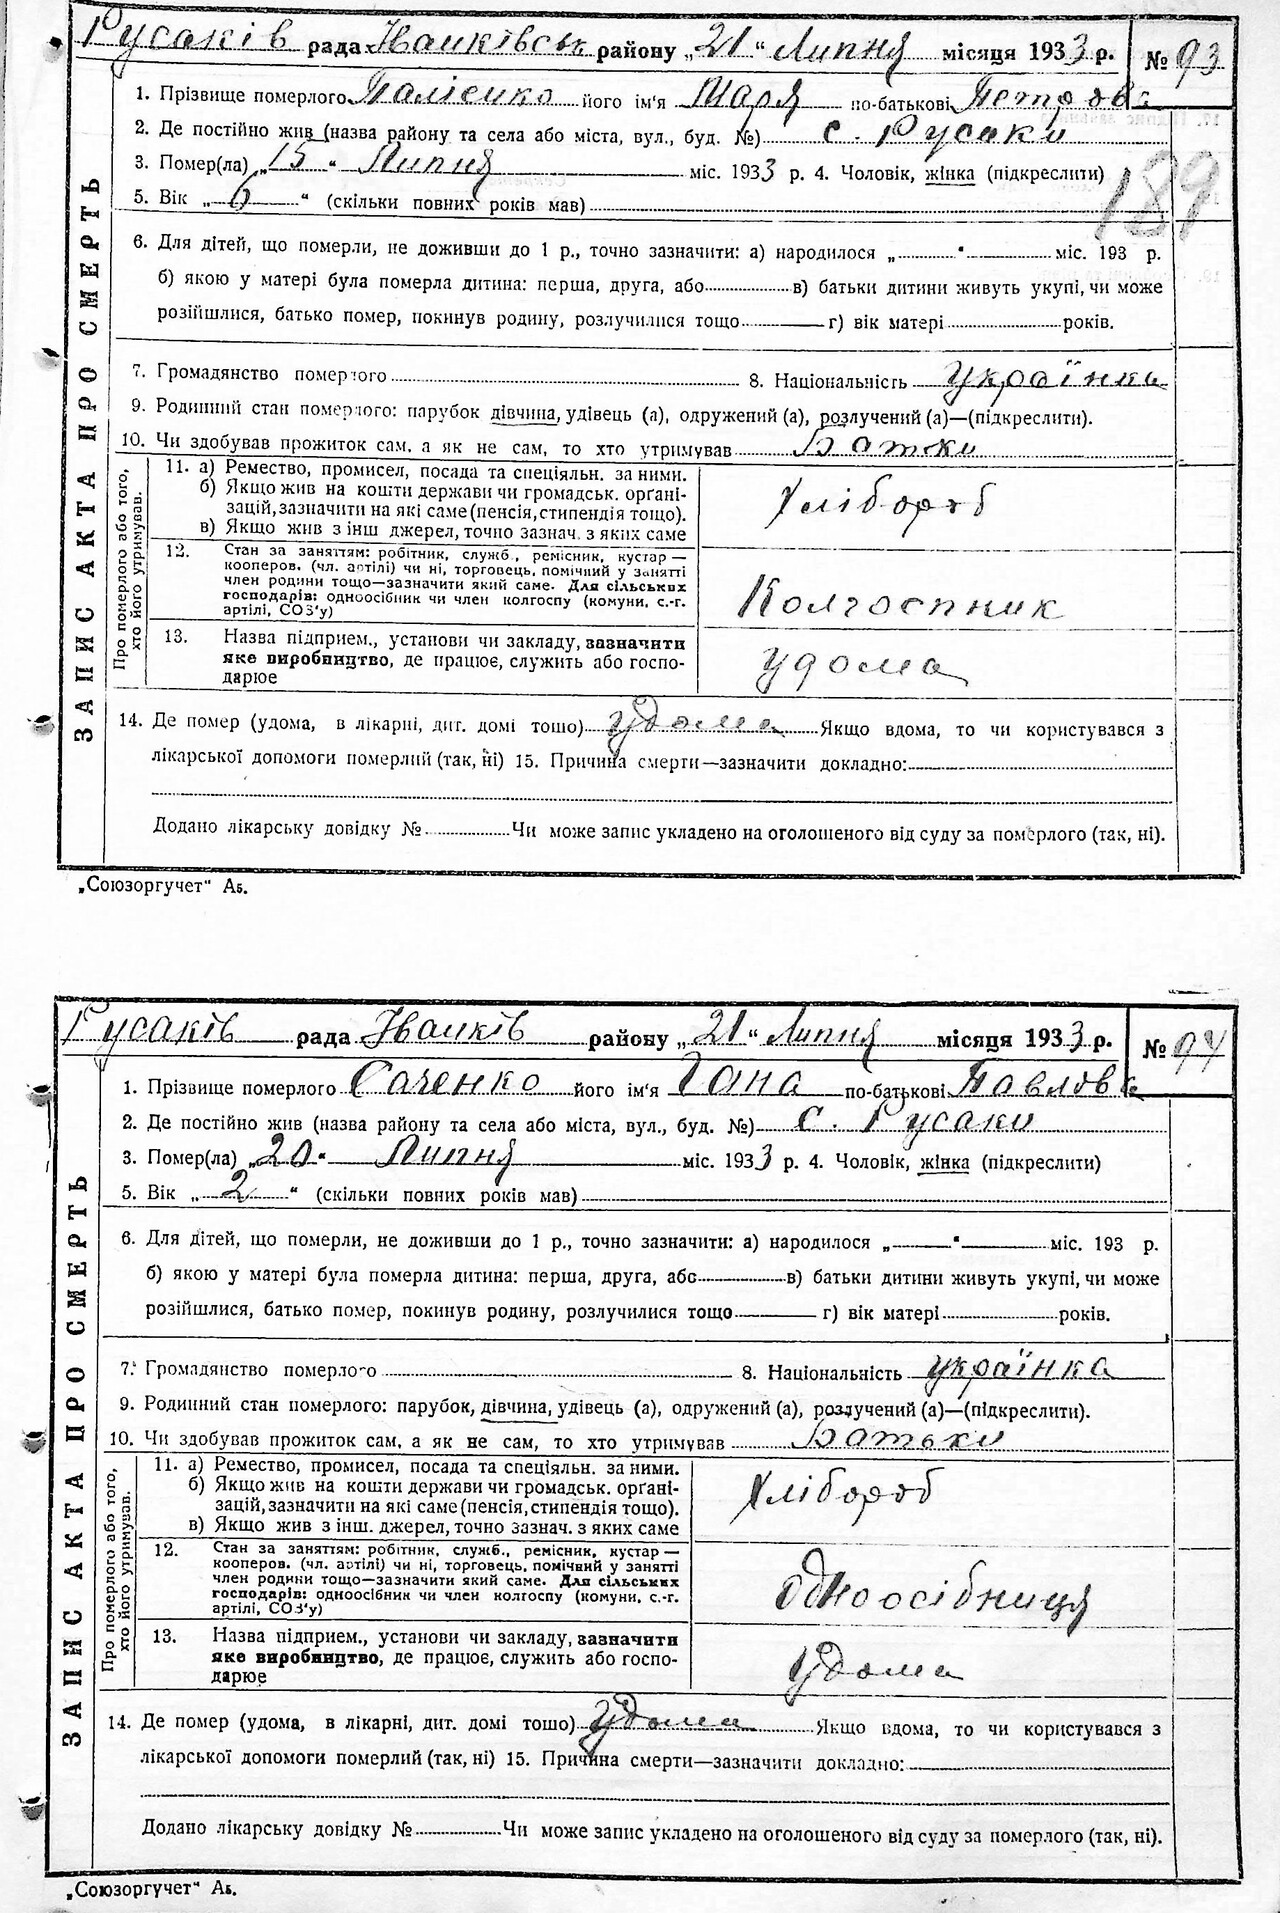 Русаків рада Іванківськ району „21“ Липня місяця 1933 р. № 93
1. Прізвище померлого Палієнко його ім'я Марія по-батькові Петровна
2. Де постійно жив (назва району та села або міста, вул., буд. №) с. Русаки
3. Помер(ла) „15“ Липня міс. 1933 р. 4. Чоловік, жінка (підкреслити)
189
5. Вік „6“ (скільки повних років мав)
6. Для дітей, що померли, не доживши до 1 р., точно зазначити: а) народилося „ “ міс. 193 р.
б) якою у матері була померла дитина: перша, друга, або в) батьки дитини живуть укупі, чи може
розійшлися, батько помер, покинув родину, розлучилися тощо г) вік матері років.
7. Громадянство померлого 8. Національність українка
9. Родинний стан померлого: парубок дівчина, удівець (а), одружений (а), розлучений (а)—(підкреслити).
10. Чи здобував прожиток сам, а як не сам, то хто утримував Батьки
11. а) Ремество, промисел, посада та спеціяльн. за ними.
б) Якщо жив на кошти держави чи громадськ. орґані-
зацій, зазначити на які саме (пенсія, стипендія тощо).
в) Якщо жив з інш джерел, точно зазнач. з яких саме
Хлібороб
12. Стан за заняттям: робітник, служб., ремісник, кустар —
кооперов. (чл. артілі) чи ні, торговець, помічний у занятті
член родини тощо—зазначити який саме. Для сільських
господарів: одноосібник чи член колгоспу (комуни, с.-г.
артілі, СОЗ'у)
Колгоспник
13. Назва підприєм., установи чи закладу, зазначити
яке виробництво, де працює, служить або госпо-
дарює
удома
14. Де помер (удома, в лікарні, дит. домі тощо) удома Якщо вдома, то чи користувався з
лікарської допомоги померлий (так, ні) 15. Причина смерти—зазначити докладно:
Додано лікарську довідку № Чи може запис укладено на оголошеного від суду за померлого (так, ні).
ЗАПИС АКТА ПРО СМЕРТЬ
Про померлого або того,
хто його утримував.
„Союзоргучет“ Аб.
Русаків рада Іванків району „21“ Липня місяця 1933 р. № 94
1. Прізвище померлого Саченко його ім'я Гана по-батькові Павловна
2. Де постійно жив (назва району та села або міста, вул., буд. №) с. Русаки
3. Помер(ла) „20“ Липня міс. 1933 р. 4. Чоловік, жінка (підкреслити)
5. Вік „2“ (скільки повних років мав)
6. Для дітей, що померли, не доживши до 1 р., точно зазначити: а) народилося „ “ міс. 193 р.
б) якою у матері була померла дитина: перша, друга, або в) батьки дитини живуть укупі, чи може
розійшлися, батько помер, покинув родину, розлучилися тощо г) вік матері років.
7. Громадянство померлого 8. Національність українка
9. Родинний стан померлого: парубок, дівчина, удівець (а), одружений (а), розлучений (а)—(підкреслити).
10. Чи здобував прожиток сам, а як не сам, то хто утримував Батьки
11. а) Ремество, промисел, посада та спеціяльн. за ними.
б) Якщо жив на кошти держави чи громадськ. орґані-
зацій, зазначити на які саме (пенсія, стипендія тощо).
в) Якщо жив з інш. джерел, точно зазнач. з яких саме
Хлібороб
12. Стан за заняттям: робітник, служб., ремісник, кустар —
кооперов. (чл. артілі) чи ні, торговець, помічний у занятті
член родини тощо—зазначити який саме. Для сільських
господарів: одноосібник чи член колгоспу (комуни, с.-г.
артілі, СОЗ'у)
Одноосібниця
13. Назва підприєм., установи чи закладу, зазначити
яке виробництво, де працює, служить або госпо-
дарює
удома
14. Де помер (удома, в лікарні, дит. домі тощо) удома Якщо вдома, то чи користувався з
лікарської допомоги померлий (так, ні) 15. Причина смерти—зазначити докладно:
Додано лікарську довідку № Чи може запис укладено на оголошеного від суду за померлого (так, ні).
ЗАПИС АКТА ПРО СМЕРТЬ
Про померлого або того,
хто його утримував.
„Союзоргучет“ Аб.